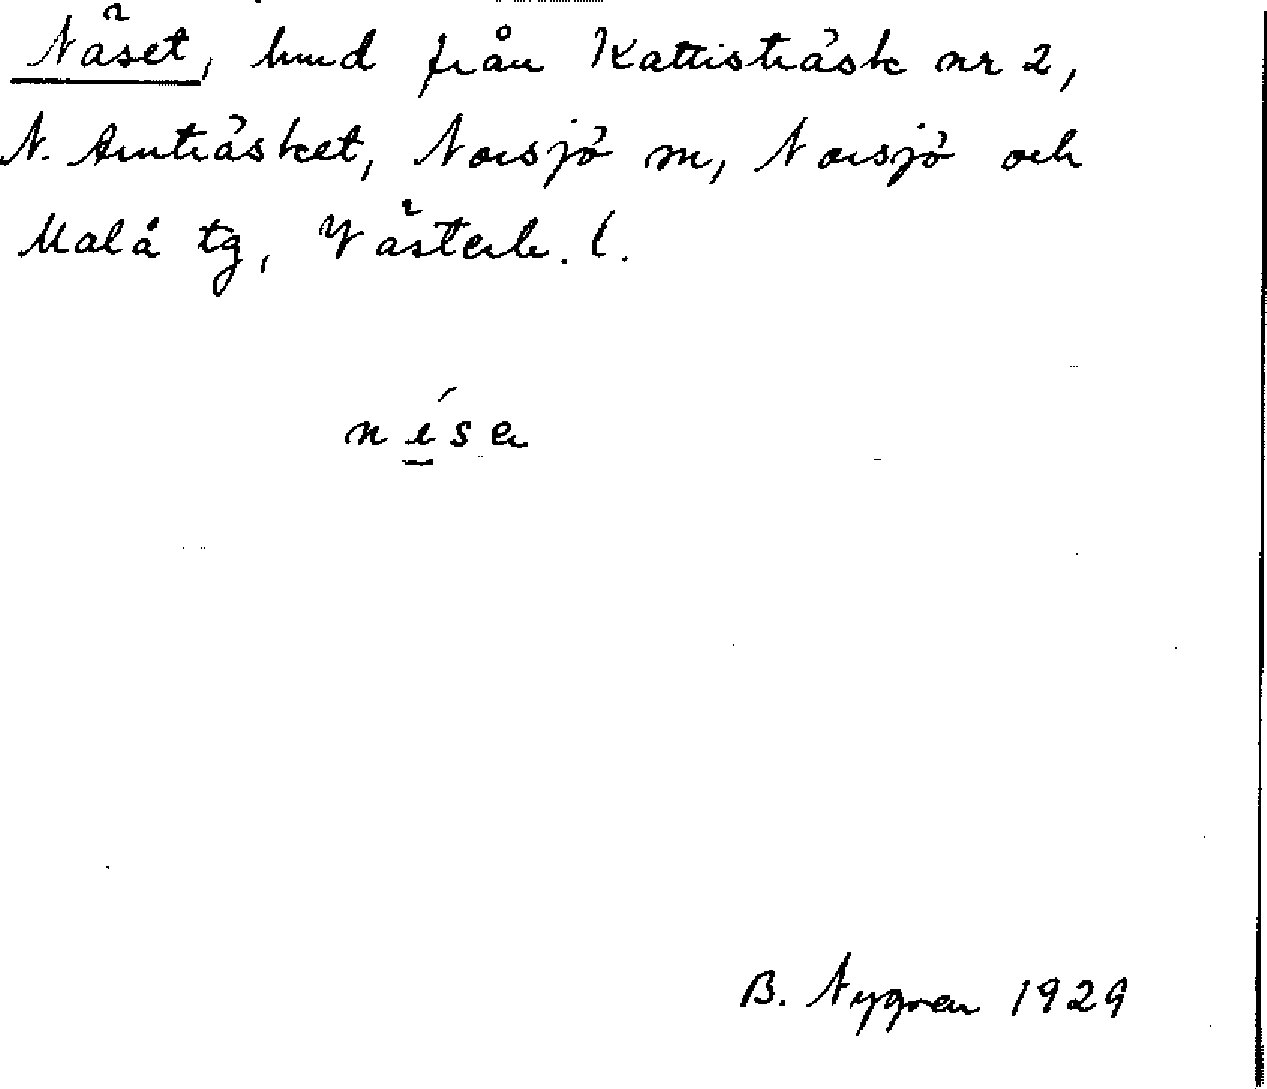 Näset, hmd från Kattisträsk nr 2,
N. Åmträsket, Norsjö sn, Norsjö och
Malå tg, Västerb. l.
nísa
B. Nygren 1929